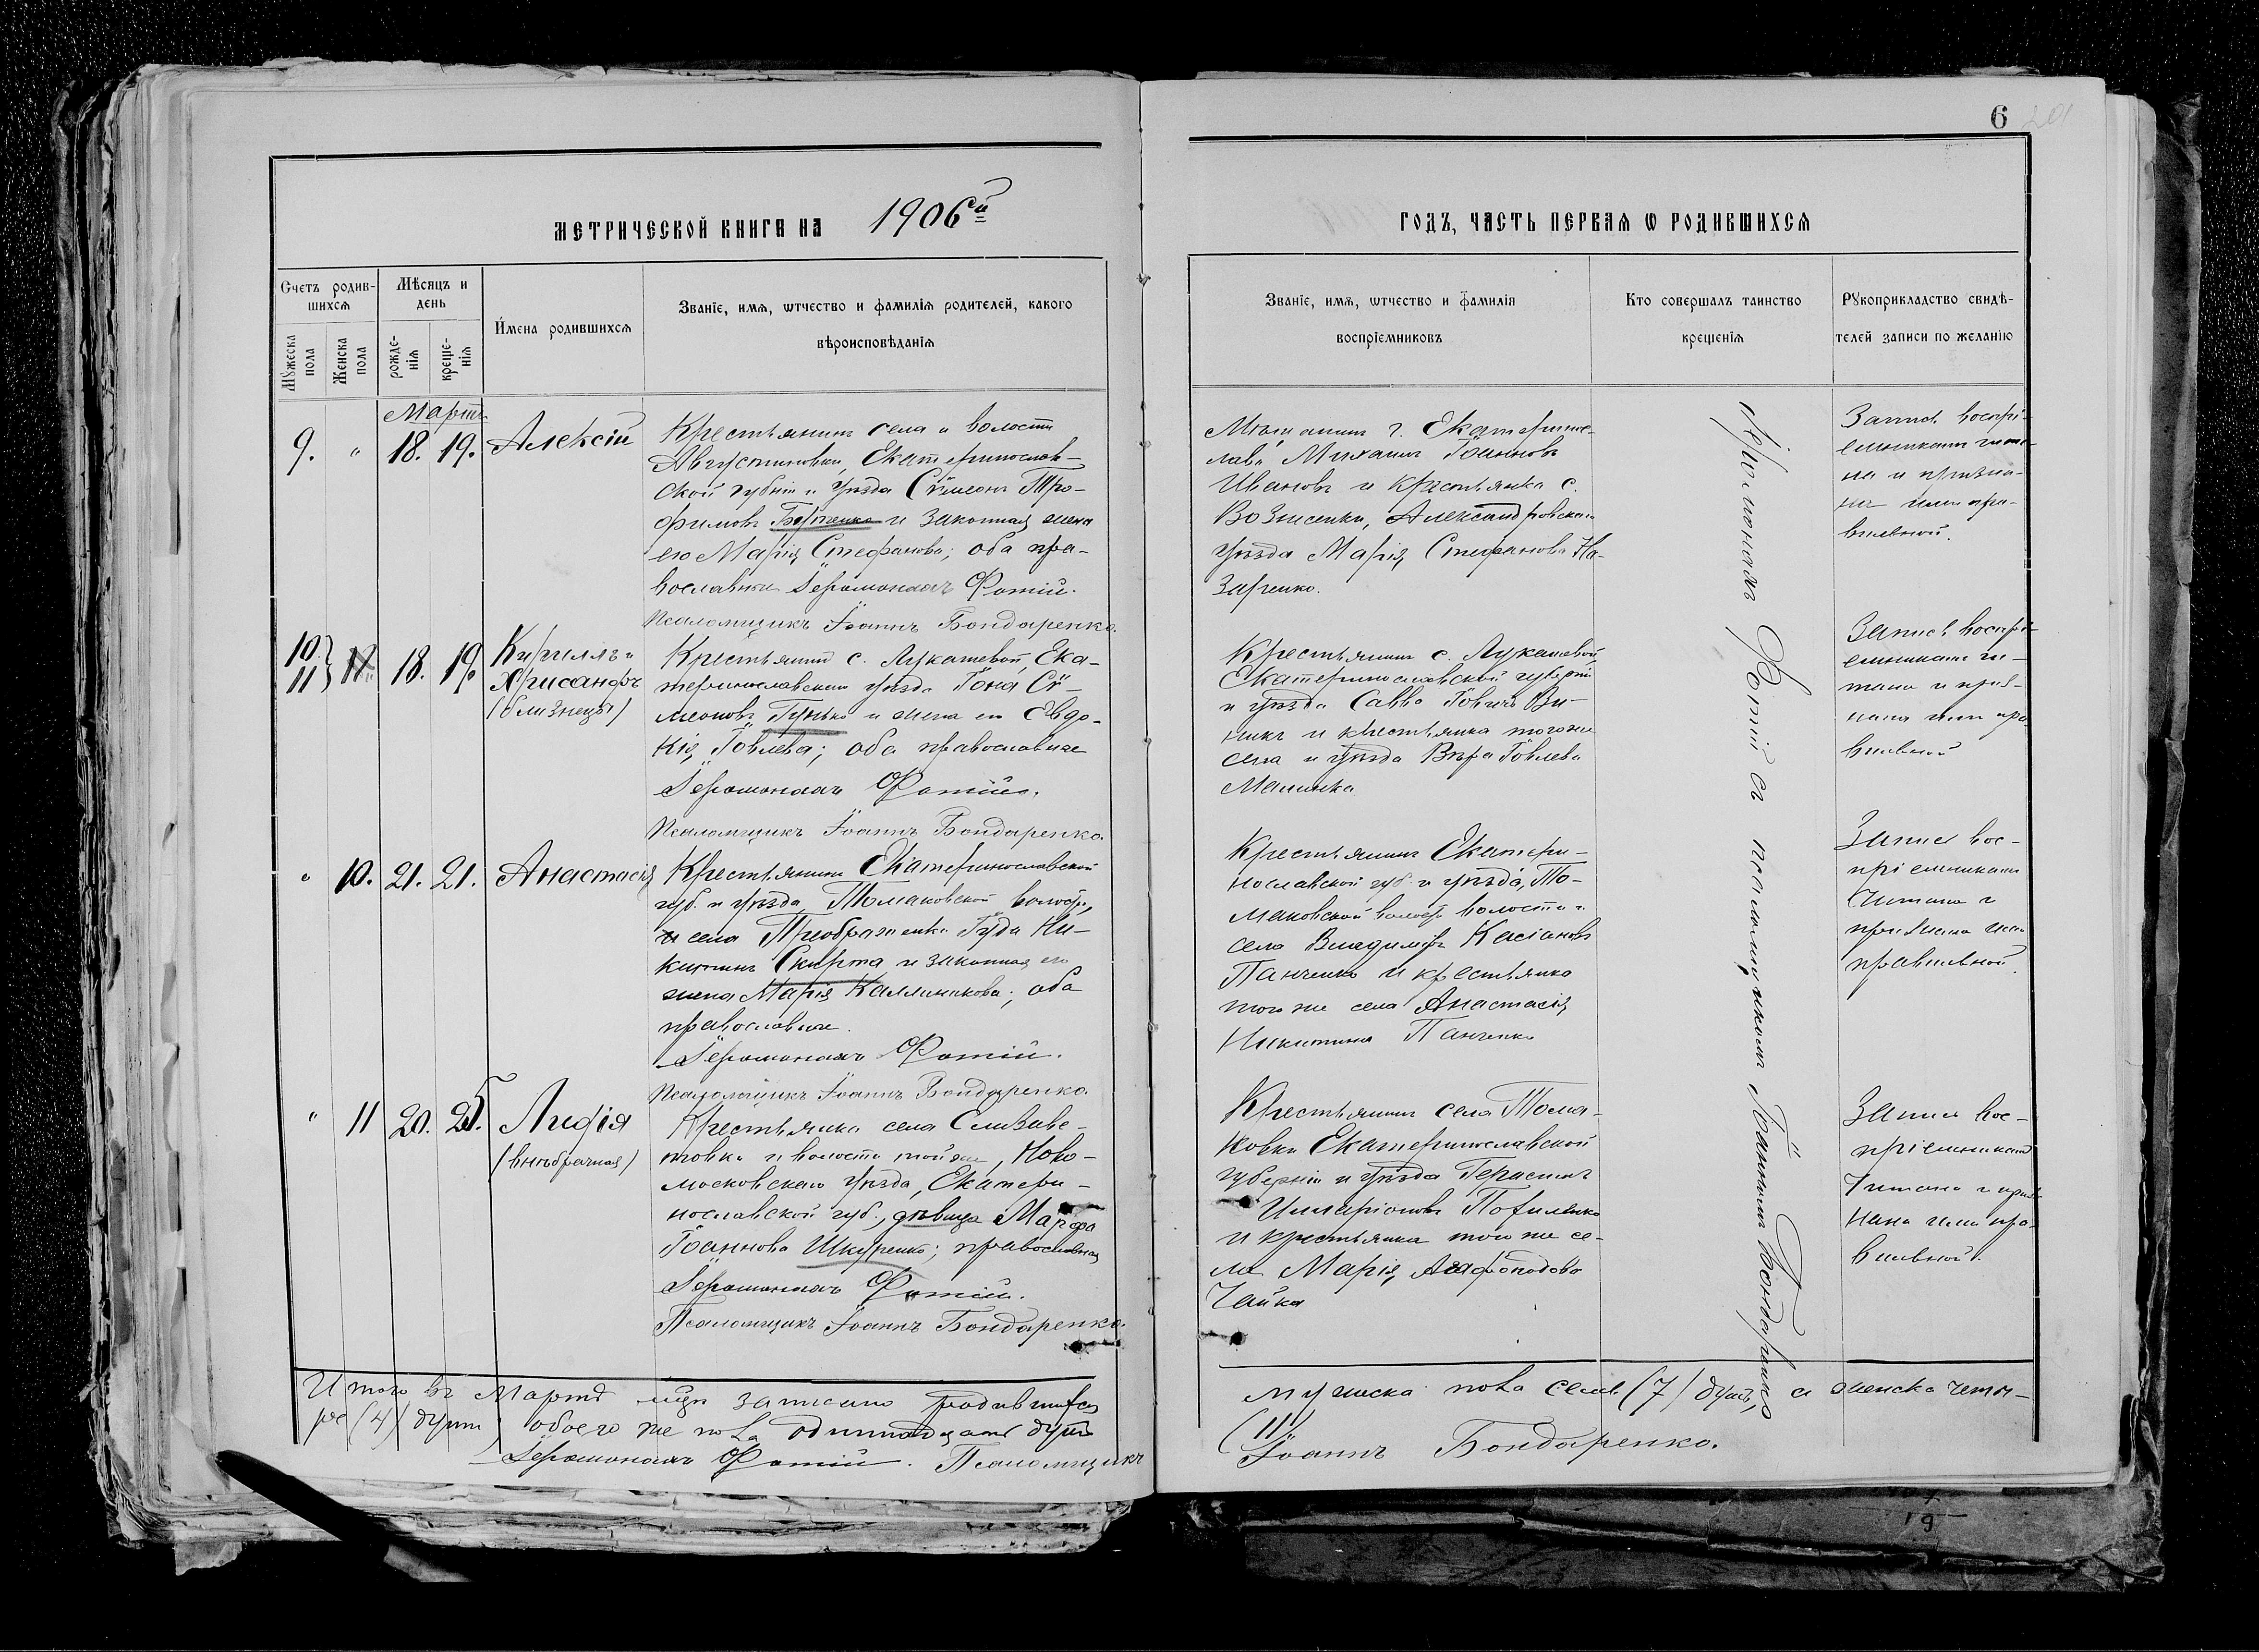 6
201
МЕТРИЧЕСКОЙ КНИГИ НА 1906й
ГОДЪ, ЧАСТЬ ПЕРВАЯ Ѡ РОДИВШИХСЯ
Счетъ родив-
шихся
Мꙋжеска
пола
Женска
пола
Мѣсяцъ и
день
рожде-
нія
креще-
нія
Имена родившихся
Званіе, имя, ѡтчество и фамилія родителей, какого
вѣроисповѣданія
Званіе, имя, ѡтчество и фамилія
воспріемниковъ
Кто совершалъ таинство
крещенія
Рꙋкоприкладство свидѣ-
телей записи по желанію
Мартъ
9. " 18. 19. Алексій
Крестьянинъ села и волости
Августиновки, Екатеринослав-
ской губніи и уѣзда Сѵмеонъ Тро-
фимовъ и законная жена
его Марія Стефанова; оба пра-
вославные Іеромонахъ Фотій.
Псаломщикъ Іоаннъ Бондаренко.
Мѣщанинъ г. Екатеринос-
лава Михаилъ Іоанновъ
Ивановъ и крестьянка с.
Вознесенки, Александровскаго
уѣзда Марія Стефанова На-
заренко.
Запись воспрі-
емникамъ чита-
на и призна-
на ими пра-
вильной.
10.
11 18. 19. Кириллъ и
Хрисанфъ
(близнецы)
Крестьянинъ с. Лукашевой, Ека-
теринославскаго уѣзда Іона Сѵ-
меоновъ Гунько и жена его Евдо-
кія Іовлева; оба православные
Іеромонахъ Фотій.
Псаломщикъ Іоаннъ Бондаренко.
Крестьянинъ с. Лукашевой,
Екатеринославской губерніи
и уѣзда Савва Іовичъ Ви-
никъ и крестьянка того же
села и уѣзда Вѣра Іовлева
Запись воспрі-
емникамъ чи-
тана и приз-
нана ими пра
вильной
" 10. 21. 21. Анастасія
Крестьянинъ Екатеринославской
губ. и уѣзда, Томаковской волости,
и села Преображенки Гуда Ни-
китинъ Скирта и законная его
жена Марія Каллиникова; оба
православные.
Іеромонахъ Фотій.
Псаломщикъ Іоаннъ Бондаренко.
Крестьянинъ Екатери-
нославской губ. и уѣзда, То-
маковской волости и
села Владиміръ Касіановъ
Панченко и крестьянка
того же села Анастасія
Никитина Панченко
Запись вос-
пріемникамъ
читана и
признана ими
правильной.
" 11 20. 25. Лидія
(внѣбрачная)
Крестьянка села Елизаве-
товки и волости той же, Ново-
московскаго уѣзда, Екатери-
нославской губ., дѣвица Марфа
Іоаннова Шкуренко; православная
Іеромонахъ Фотій.
Псаломщикъ Іоаннъ Бондаренко.
Крестьянинъ села Тома-
ковки Екатеринославской
губерніи и уѣзда Герасимъ
Илларіоновъ
и крестьянка того же се-
ла Марія
Чайка
Запись вос-
пріемникамъ
читана и приз
нана ими пра-
вильной.
Іеромонахъ Фотій съ псаломщикомъ Іоанномъ Бондаренко
Итого въ Мартѣ мцѣ записано родившихся
мужеска пола семь (7) душъ, а женска четы-
ре (4) души, обоего же пола одиннадцать душъ
(11)
Іеромонахъ Фотій. Псаломщикъ
Іоаннъ Бондаренко.